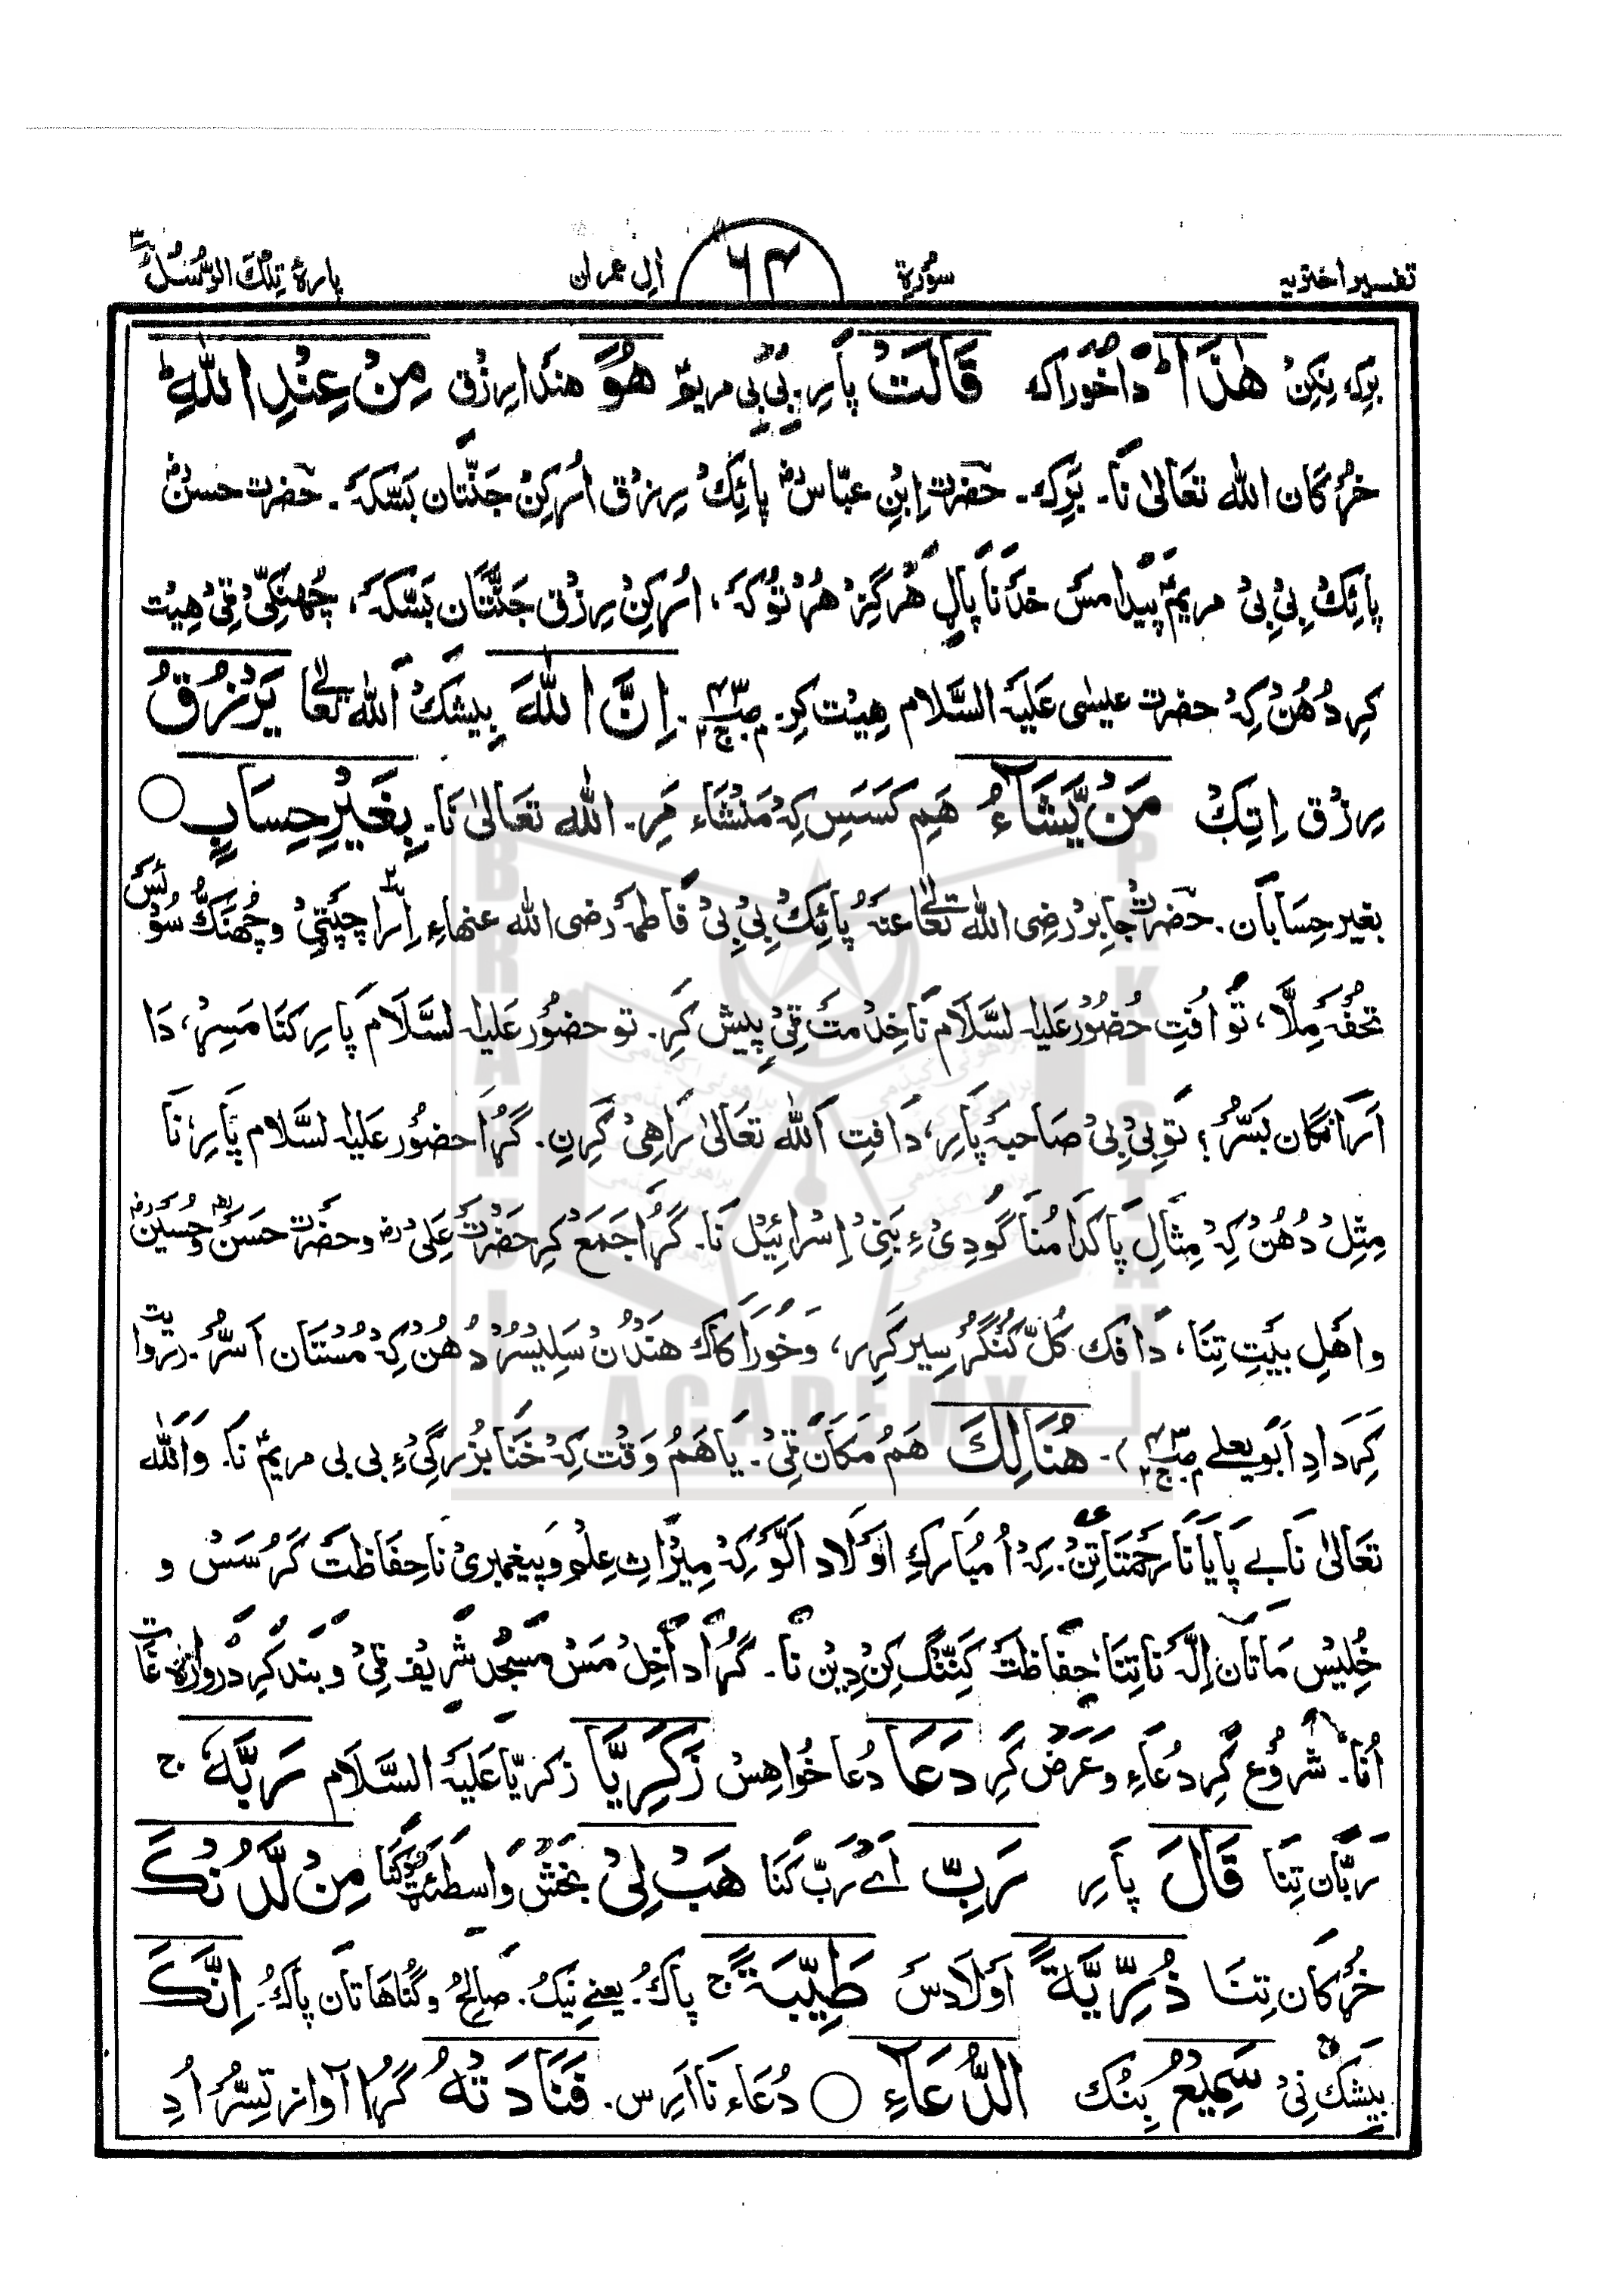 تفسیر اختریہ سُوۡرَۃِ ۶۴ اٰلِ عمران پارۂ تِلۡکَ الرُّسُلُ ۳
بَرِکہ نِکِنۡ ھٰذَا ؕ داخوراکہ قَالَتۡ پارِ بِیۡ بِیۡ مریمؑ ھُوَ ھندا رِزۡق مِنۡ عِنۡدِ اللّٰہِ ؕ
خُڑکَان اللّٰہ تَعَالیٰ نَا۔ بَرِک۔ حضرت اِبنِ عبّاسؓ پائِکۡ رِزۡق اُسرکِنۡ جَنَّتَان بَسّکہَ۔ حضرت حسنؓ
پائِکۡ بِیۡ بِیۡ مریمؑ پیدا مَسۡ خدَنَا پالِ ھَرۡگِزۡ ھُرۡتَوُکہَ، اُسرکِنۡ رِزۡق جَنَّتَان بَسّکہَ، چُھنَکِّیۡ ٹِیۡ ھِیۡت
کرِ دُھُنۡ کِہۡ حضرت عیسٰی عَلَیۡہِ السَّلَام ھِیۡت کرِ۔ اِنَّ اللّٰہَ بِیشَکۡ اَللّٰہ تَعَالٰے یَرۡزُقُ
رِزۡق اِتِکۡ مَنۡ یَّشَآءُ ھَمِ کَسَسِ کِہۡ مَنۡشَاء مَرِ۔ اللّٰہ تَعَالیٰ نَا۔ بِغَیۡرِ حِسَابٍ ○
بغیر حِسَابَان۔ حضرت جابر رَضِی اللّٰہ تَعَالٰے عنہُ پائِکۡ بِیۡ بِیۡ فَاطمہَ رضی اللّٰہ عنھاءِ اِرَا چَپَّتِیۡ و چُھنَکُّ سُوۡ ئَسۡ
تحفہَ مِلَّا، تَو اُفتِ حُضُوۡر عَلَیہِ السَّلَام نَا خِدۡمَتۡ ٹِیۡ پِیش کرِ۔ تو حضُوۡر عَلَیہِ السَّلَام پارِ کَنَا مَسِرۡ، دَا
اَرَانگان بَسُّرۡ؟ تَو بِیۡ بِیۡ صَاحبہَ پارِ، دَا فتِ اَللّٰہ تَعَالیٰ رَاھِیۡ کَرِن۔ گُڑَا حضُوۡر عَلَیہِ السَّلَام پارِ، نَا
مِثِلۡ دُھُنۡ کِہۡ مِثَالِ پاکدَامُنَا گُودِیۡ ءِ بَنِیۡ اِسۡرَائِیۡل نَا۔ گُڑَا جَمَعۡ کرِ حَضۡرت عَلِیؓ و حضرت حسَنؓ وحُسَینؓ
و اَھلِ بیَتِ تِنَا، دَافک کُلّ کُنگُر سِیر کَرِر، وَخُورَاکَاک ھَنۡدُنۡ سَلِیسُرۡ دُھُنۡ کِہۡ مُسۡتَان اَسُّرۡ۔ رِوَایت
کَرِ دَادِ اَبُو یعلے )۔ ھُنَالِکَ ھَمُ مَکَان ٹِیۡ۔ یَا ھَمُ وَقۡت کِہۡ خَنَا بُزُرگِیۡ ءِ بی بی مریمؑ نَا۔ وَاللّٰہ
تَعَالیٰ نَا بے پَایَانَا رَحۡمَتَاتِنۡ۔ کِہۡ اُ مُبَارَکِ اَوۡلَاد اَلَّو کِہۡ مِیۡرَاثِ عِلۡم وَ پیغمبرِیۡ نَا حِفَاظتۡ کَرُسَسۡ و
خُلِیسۡ مَاتَان اِلَّہ نَا تِنَا حِفَاظتۡ کَنِنَّگ کِنۡ دِیۡن نَا۔ گُڑَا دَاخِلۡ مَسۡ مَسۡجِدۡ شَرِیف ٹِیۡ و بند کرِ دروازہ غَاتِ
اُنَا۔ شُرُوۡع کرِ دُعَاءِ وَعَرَضۡ کَرِ دَعَا دُعا خُواھِسۡ زَکَرِیَّا زکریّا عَلَیۡہِ السَّلَام رَبَّہٗ ج
رَبَّان تِنَا قَالَ پارِ رَبِّ اَے رَبّ کَنَا ھَبۡ لِیۡ بَخۡشۡ وَاسطَئِٹۡ کَنَا مِنۡ لَّدُنۡکَ
خُڑکَان تِنَا ذُرِّیَّۃً اَوۡلَادَسۡ طَیِّبَۃً ج پاکُ۔ یعنے نِیکُ۔ صَالِحُ و گُنَاھَاتَان پَاکُ۔ اِنَّکَ
بیشَکۡ نِیۡ سَمِیۡعُ بِنُک الدُّعَآءِ ○ دُعَاء نَا اَرِس۔ فَنَادَتۡہُ گُڑَا آواز تِسُّرۡ اُدِ